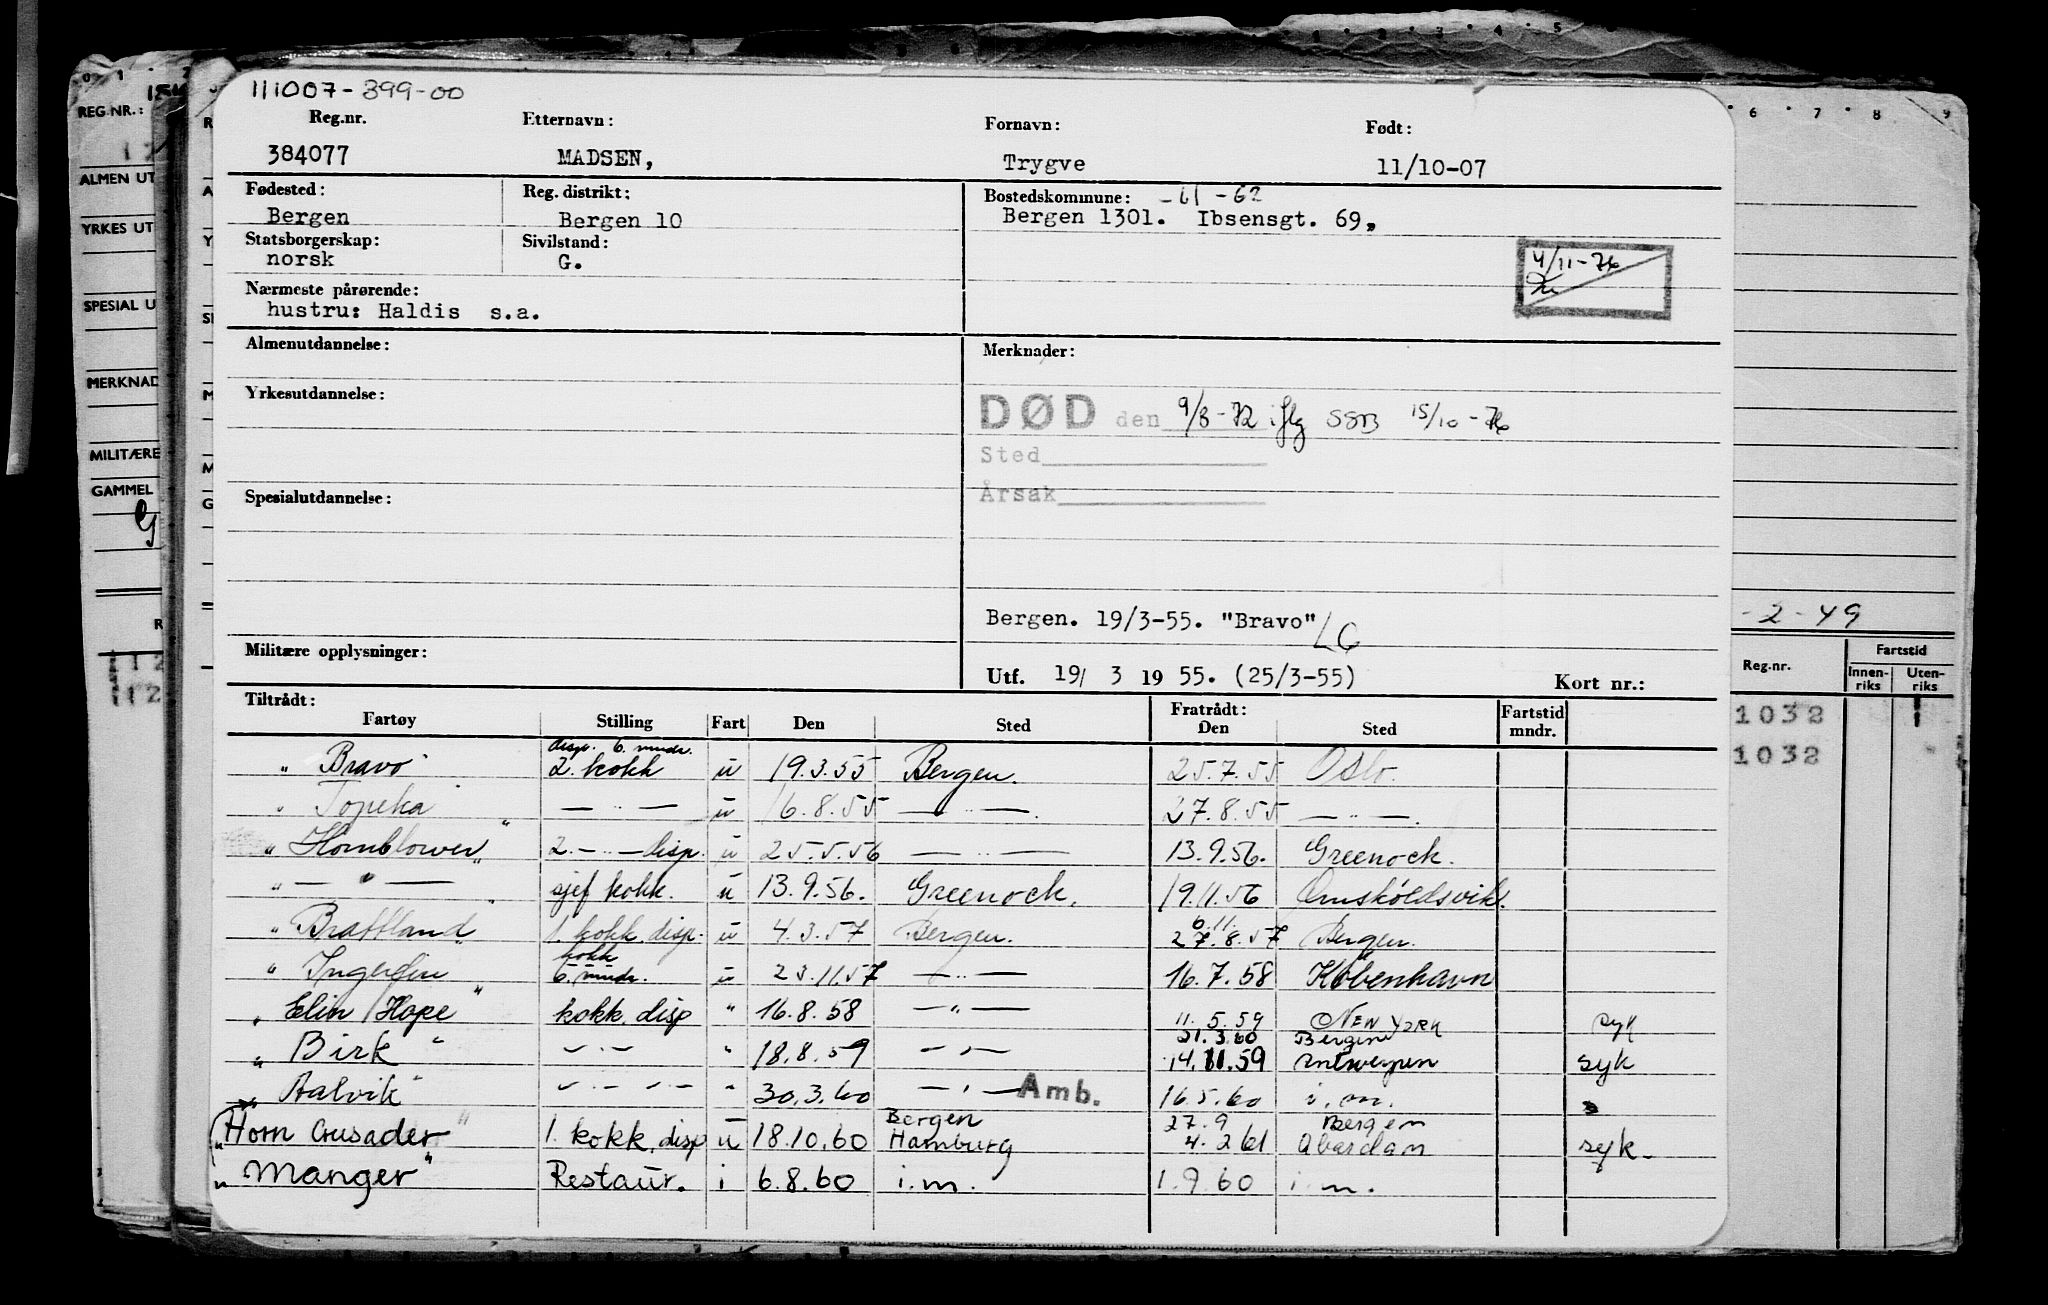 111007-399-00
Reg.nr. Etternavn: Fornavn: Født:
384077 MADSEN, Trygve 11/10-07
Fødested: Reg. distrikt: Bostedskommune: -61-62
Bergen Bergen 10 Bergen 1301. Ibsensgt. 69,
Statsborgerskap: Sivilstand:
norsk G.
4/11-76
Nærmeste pårørende:
hustru: Haldis s.a.
Almenutdannelse: Merknader:
Yrkesutdannelse:
DØD den 9/3-72 iflg SSB 15/10-76
Sted
Årsak
Spesialutdannelse:
Bergen. 19/3-55. "Bravo" LG
Militære opplysninger:
Utf. 19/ 3 19 55. (25/3-55) Kort nr.:
Tiltrådt: Fratrådt: Fartstid
Fartøy Stilling Fart Den Sted Den Sted mndr.
disp. 6. mndr.
" Bravo 2. kokk u 19.3.55 Bergen. 25.7.55 Oslo.
" Topeka — " — u 16.8.55 — " —. 27.8.55 — " —.
" Hornblower" 2. — " — disp. u 25.5.56 — " — 13.9.56. Greenock.
" — " — " sjef kokk. u 13.9.56. Greenock. 19.11.56 Ørnsköldsvik.
6.11.
" Brattland" 1. kokk disp. u 4.3.57 Bergen. 27.8.57 Bergen.
kokk
" Ingerfin" 6. mndr. u 23.11.57 — " — 16.7.58 København
" Elin Hope" kokk. disp " 16.8.58 — " — 11.5.59 NEW YORK syk
21.3.60 Bergen
" Birk " — " — " 18.8.59 — " — 14.11.59 Antwerpen syk
" Aalvik" — " — " — " 30.3.60 — " — Amb. 16.5.60 i.m.
Bergen 27.9 Bergen
" Horn Crusader" 1. kokk. disp u 18.10.60 Hamburg 4.2 61 Abardan syk.
" Manger" Restaur. i 6.8.60 i.m. 1.9.60 i.m.
REG.NR.:
ALMEN UT
YRKES UT
SPESIAL U
MERKNAD
MILITÆRE
GAMMEL
-2-49
Reg.nr. Fartstid
Innen- Uten-
riks riks
1032
1032